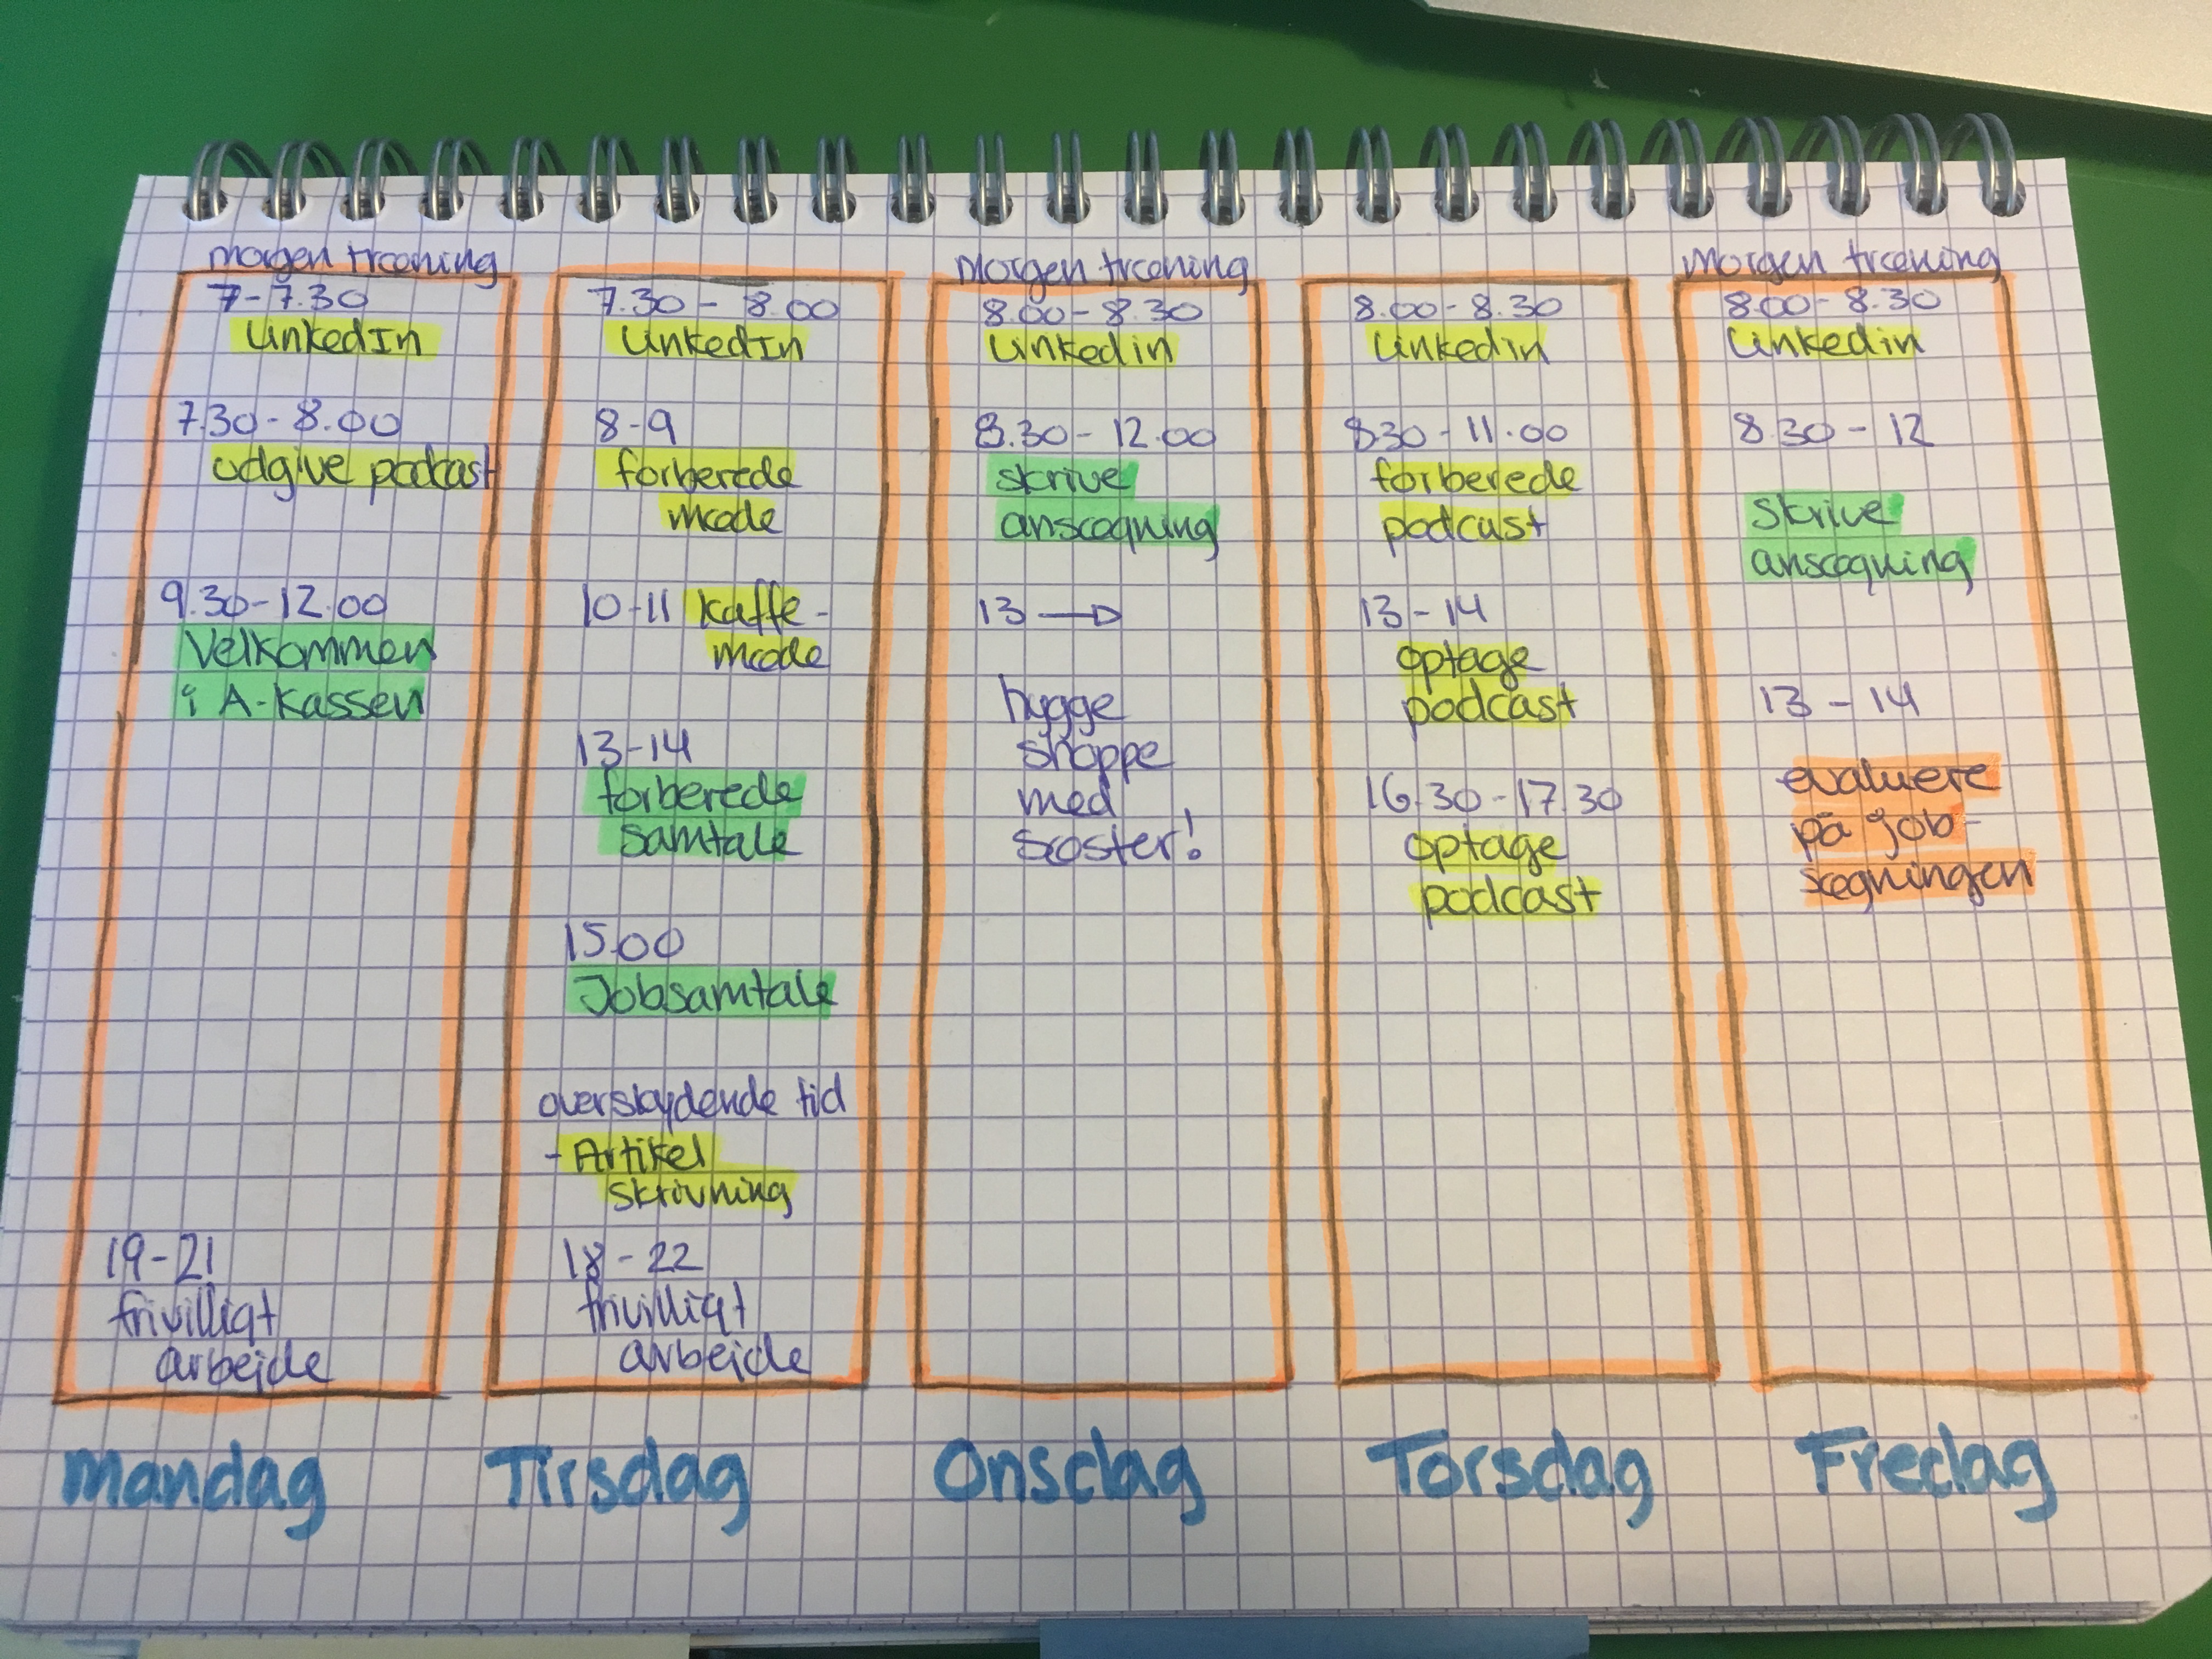 morgen træning
7-7.30
LinkedIn
7.30-8.00
udgive podcast
9.30-12.00
Velkommen
i A-kassen
19-21
frivilligt
arbejde
Mandag
7.30-8.00
LinkedIn
8-9
forberede
møde
10-11 kaffe-
møde
13-14
forberede
samtale
15.00
Jobsamtale
overskydende tid
- Artikel
skrivning
18-22
frivilligt
arbejde
Tirsdag
Morgen træning
8.00-8.30
Linkedin
8.30-12.00
skrive
ansøgning
13 →
hygge
shoppe
med
søster!
Onsdag
8.00-8.30
Linkedin
830-11.00
forberede
podcast
13-14
optage
podcast
16.30-17.30
optage
podcast
Torsdag
Morgen træning
8.00-8.30
Linkedin
8.30-12
Skrive
ansøgning
13-14
evaluere
på job-
søgningen
Fredag